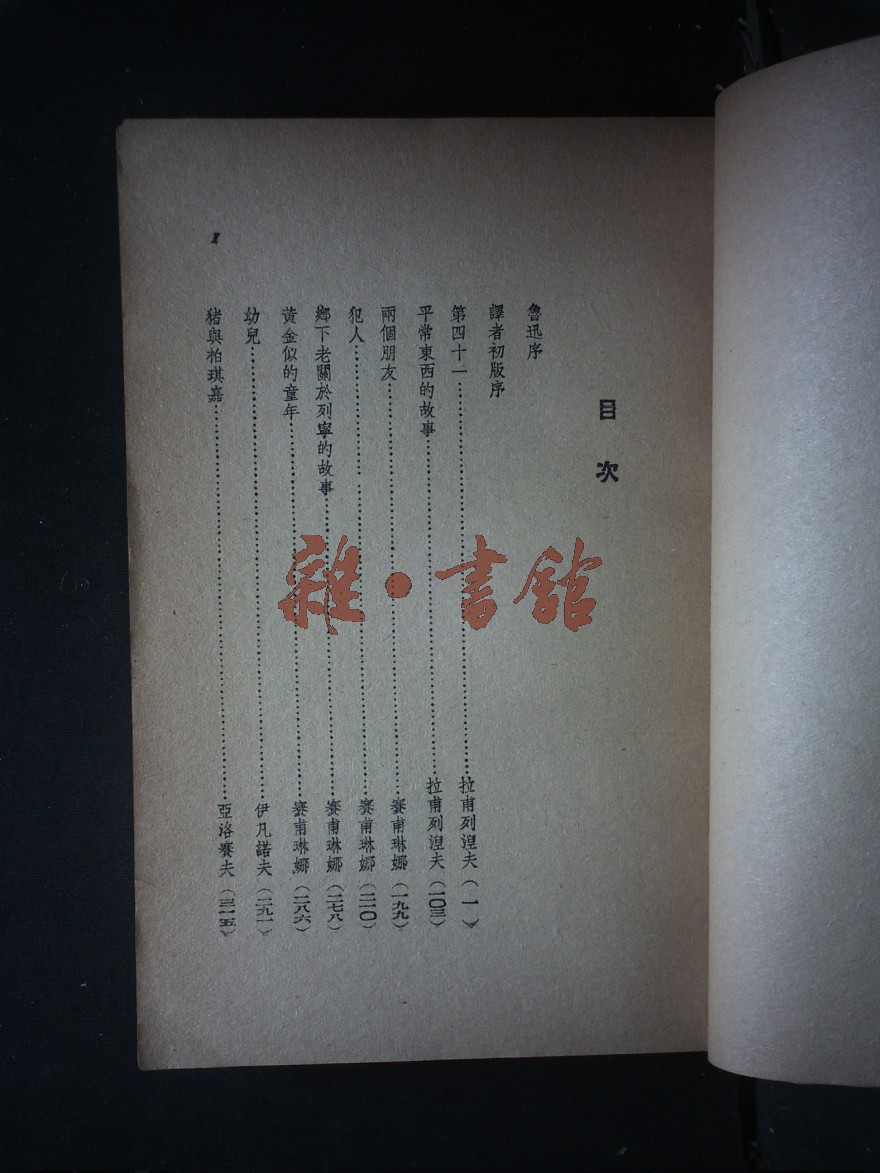 目次
魯迅序
譯者初版序
第四十一……拉甫列湼夫（一）
平常東西的故事……拉甫列湼夫（一〇三）
兩個朋友……賽甫琳娜（一九九）
犯人……賽甫琳娜（二一〇）
鄉下老關於列寧的故事……賽甫琳娜（二七八）
黃金似的童年……賽甫琳娜（二八六）
幼兒……伊凡諾夫（二九一）
猪與柏琪嘉……亞洛賽夫（三一五）
I
雜·書館